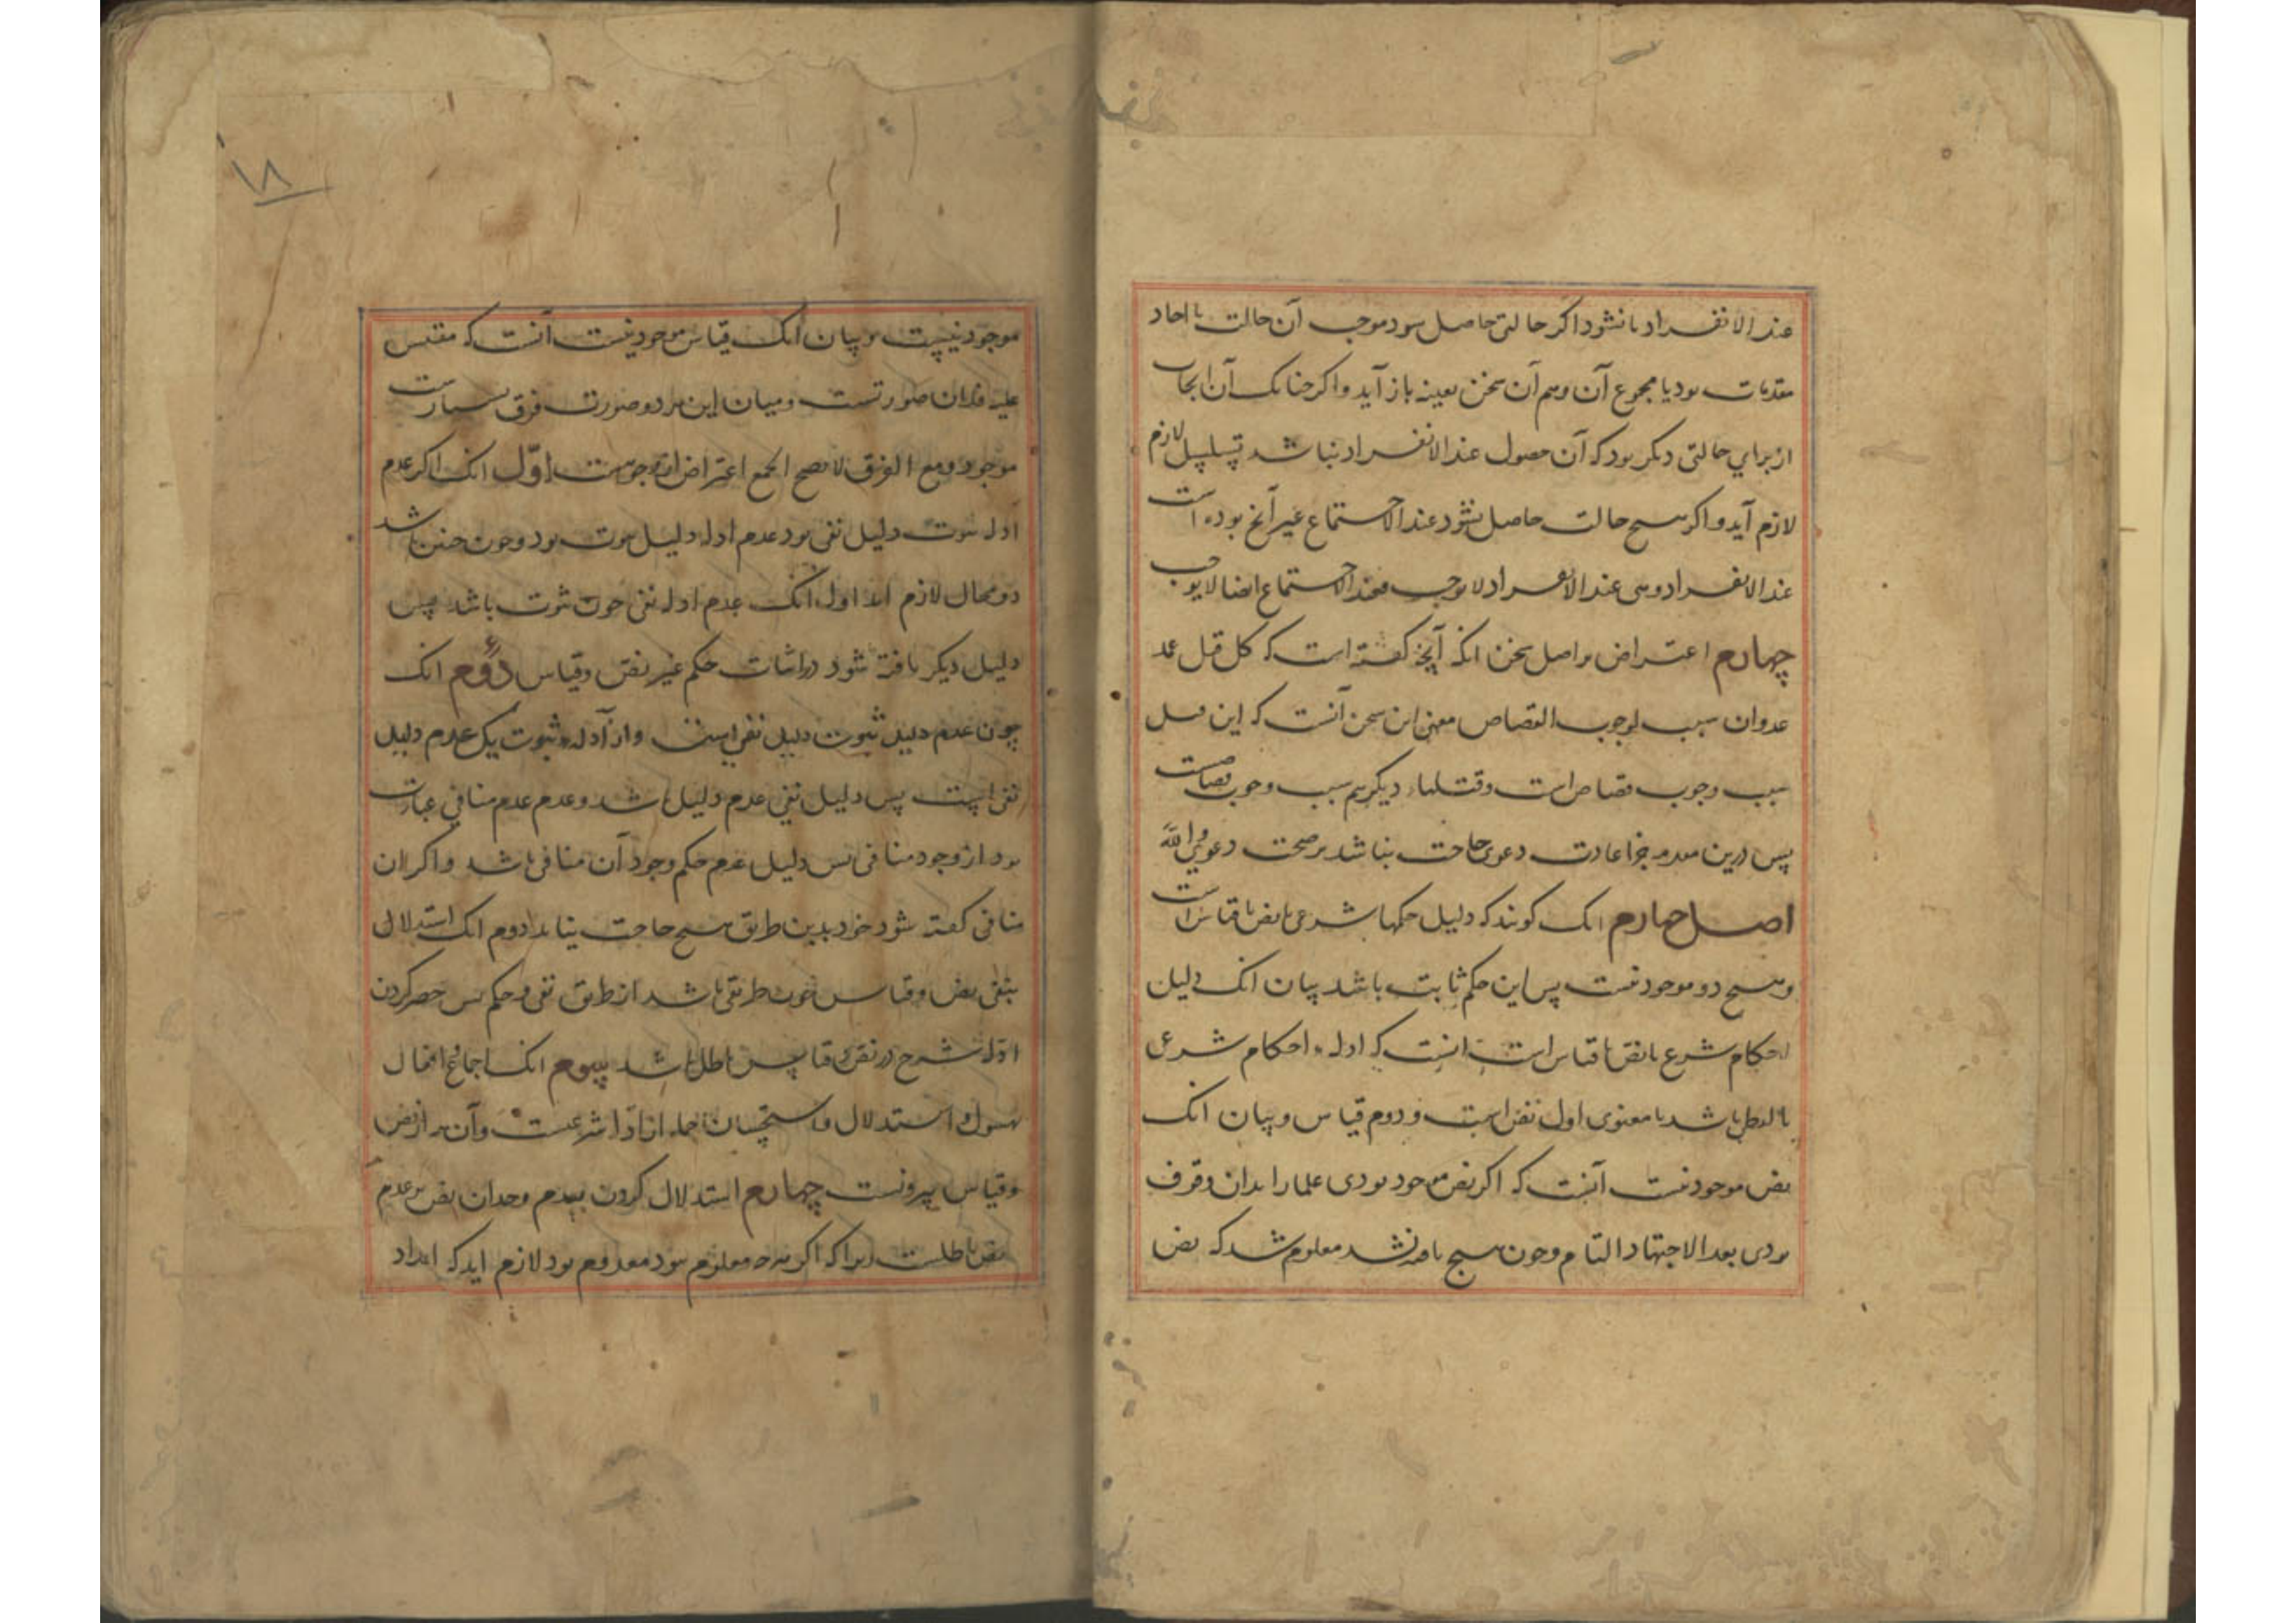 عند الانفراد یا نشود اگر حالتی حاصل بود موجب آن حالت یا احاد
مقدمات بود یا مجموع آن وهم آن سخن بعینه باز آید و اگر چنانک آن ایجاب
از برای حالتی دیگر بود که آن حصول عند الانفراد نباشد تسلسل لازم
لازم آید و اگر هیچ حالت حاصل نشود عند الاجتماع غیر آنچ بوده است
عند الانفراد وهی عند الانفراد لا یوجب فعند الاجتماع ایضا لا یوجب
چهارم اعتراض بر اصل سخن انکه آنچه گفته است که کل قتل عمد
عدوان سبب لوجوب القصاص معنی این سخن آنست که این قتل
سبب وجوب قصاص است وقتلهاء دیگر هم سبب وجوب قصاصست
پس درین مقدمه جز اعادت دعوی حاجت نباشد بر صحت دعوی والله
اصل چهارم انک گویند که دلیل حکمها شرعی یا نص یا قیاس است
وهیچ دو موجود نیست پس این حکم ثابت باشد بیان انک دلیل
احکام شرع یا نص یا قیاس است انست که ادله احکام شرعی
باشد یا معنوی اول نص است ودوم قیاس وبیان انک
نص موجود نیست آنست که اگر نص موجود بودی علما را بدان وقوف
بودی بعد الاجتهاد التام وچون هیچ یافته نشد معلوم شد که نص
۱۸
موجود نیست وبیان انک قیاس موجود نیست آنست که مقیس
علیه فلان صورتست ومیان این هر دو صورت فرق بسیارست
موجود ومع الفرق لا یصح الجمع اعتراض از وجوهست اول انک اگر عدم
ادله ثبوت دلیل نفی بود عدم ادله دلیل ثبوت بود وچون چنین باشد
دو محال لازم اید اول انک عدم ادله نفی چون ثبوت باشد پس
دلیل دیگر یافته شود در اثبات حکم غیر نص وقیاس دوم انک
چون عدم دلیل ثبوت دلیل نفی است واز ادله ثبوت یکی عدم دلیل
نفی است پس دلیل نفی عدم دلیل باشد وعدم عدم منافی عبارت
بود از وجود منافی پس دلیل عدم حکم وجود آن منافی باشد واگر ان
منافی گفته شود خود بدین طریق هیچ حاجت نیاید دوم انک استدلال
بنفی نص وقیاس چون طریقی باشد از طرق نفی حکم پس حصر کردن
ادله شرع در نص وقیاس باطل باشد سیوم انک اجماع افعال
رسول واستدلال واستحسان جمله از ادله شرعست وآن از نص
وقیاس بیرونست چهارم استدلال کردن بعدم وجدان نص بر عدم
نص باطلست زیرا که اگر هرچه معلوم نبود معدوم بود لازم اید که اعداد